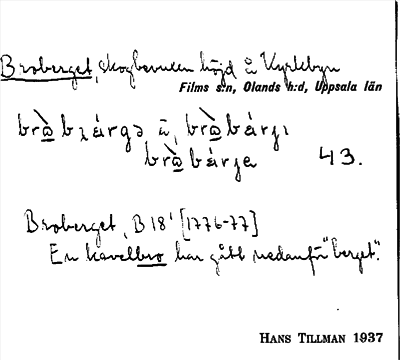 Broberget, skogbevuxen höjd å Kyrkbyn
Films s:n, Olands h:d, Uppsala län
43.
Broberget, B 18' [1776-77]
En kavelbro har gått nedanför "berget".
HANS TILLMAN 1937